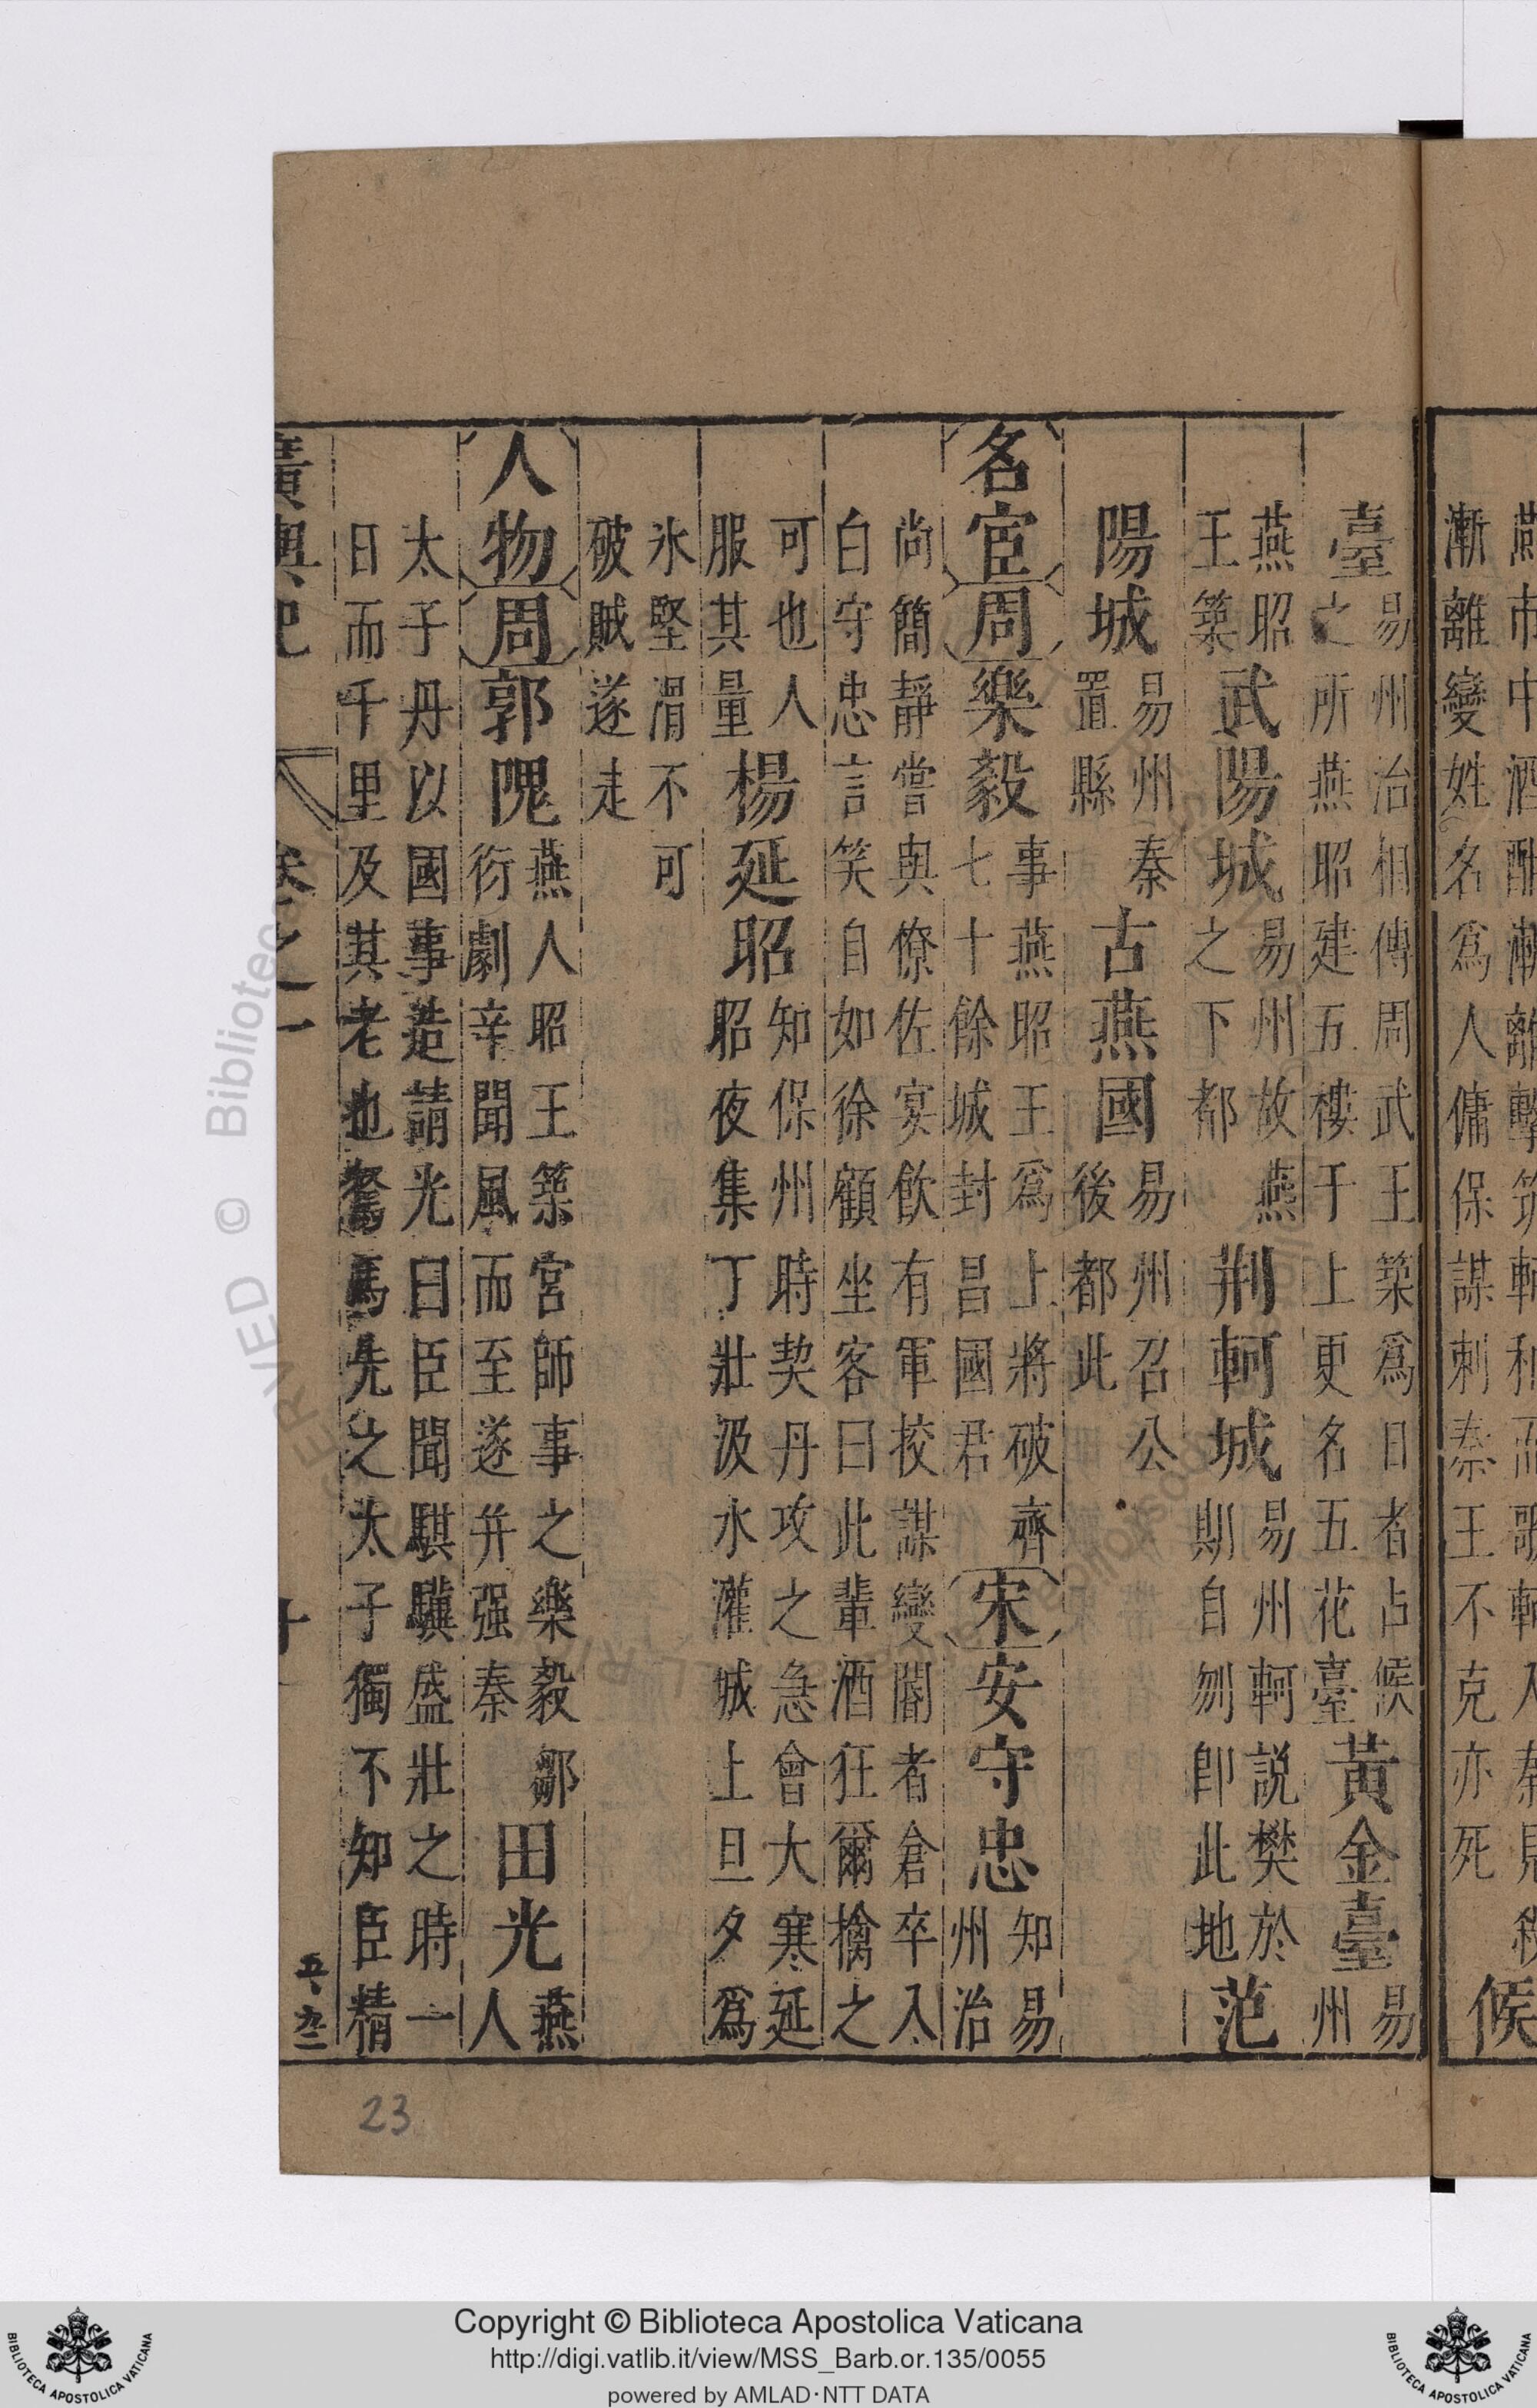 漸離變姓名爲人傭保謀刺秦王不克亦死 候
臺 易州治相傳周武王築爲日者占候
之所燕昭建五樓于上更名五花臺 黃金臺 易州
燕昭王築 武陽城 易州故燕之下都 荆軻城 易州軻説樊於期自刎卽此地 范
陽城 易州秦置縣 古燕國 易州召公後都此
名宦 周 樂毅 事燕昭王爲上將破齊七十餘城封昌國君 宋 安守忠 知易州治
尚簡靜嘗與僚佐宴飲有軍校謀變閽者倉卒入
白守忠言笑自如徐顧坐客曰此輩酒狂爾擒之
可也人服其量 楊延昭 知保州時契丹攻之急會大寒延昭夜集丁壯汲水灌城上旦夕爲
氷堅滑不可破賊遂走
人物 周 郭隗 燕人昭王築宮師事之樂毅鄒衍劇辛聞風而至遂并强秦 田光 燕人
太子丹以國事造請光曰臣聞騏驥盛壯之時一
日而千里及其老也駑馬先之太子獨不知臣精
廣輿記 卷之一
23
Copyright © Biblioteca Apostolica Vaticana
http://digi.vatlib.it/view/MSS_Barb.or.135/0055
powered by AMLAD·NTT DATA
BIBLIOTECA APOSTOLICA VATICANA
BIBLIOTECA APOSTOLICA VATICANA